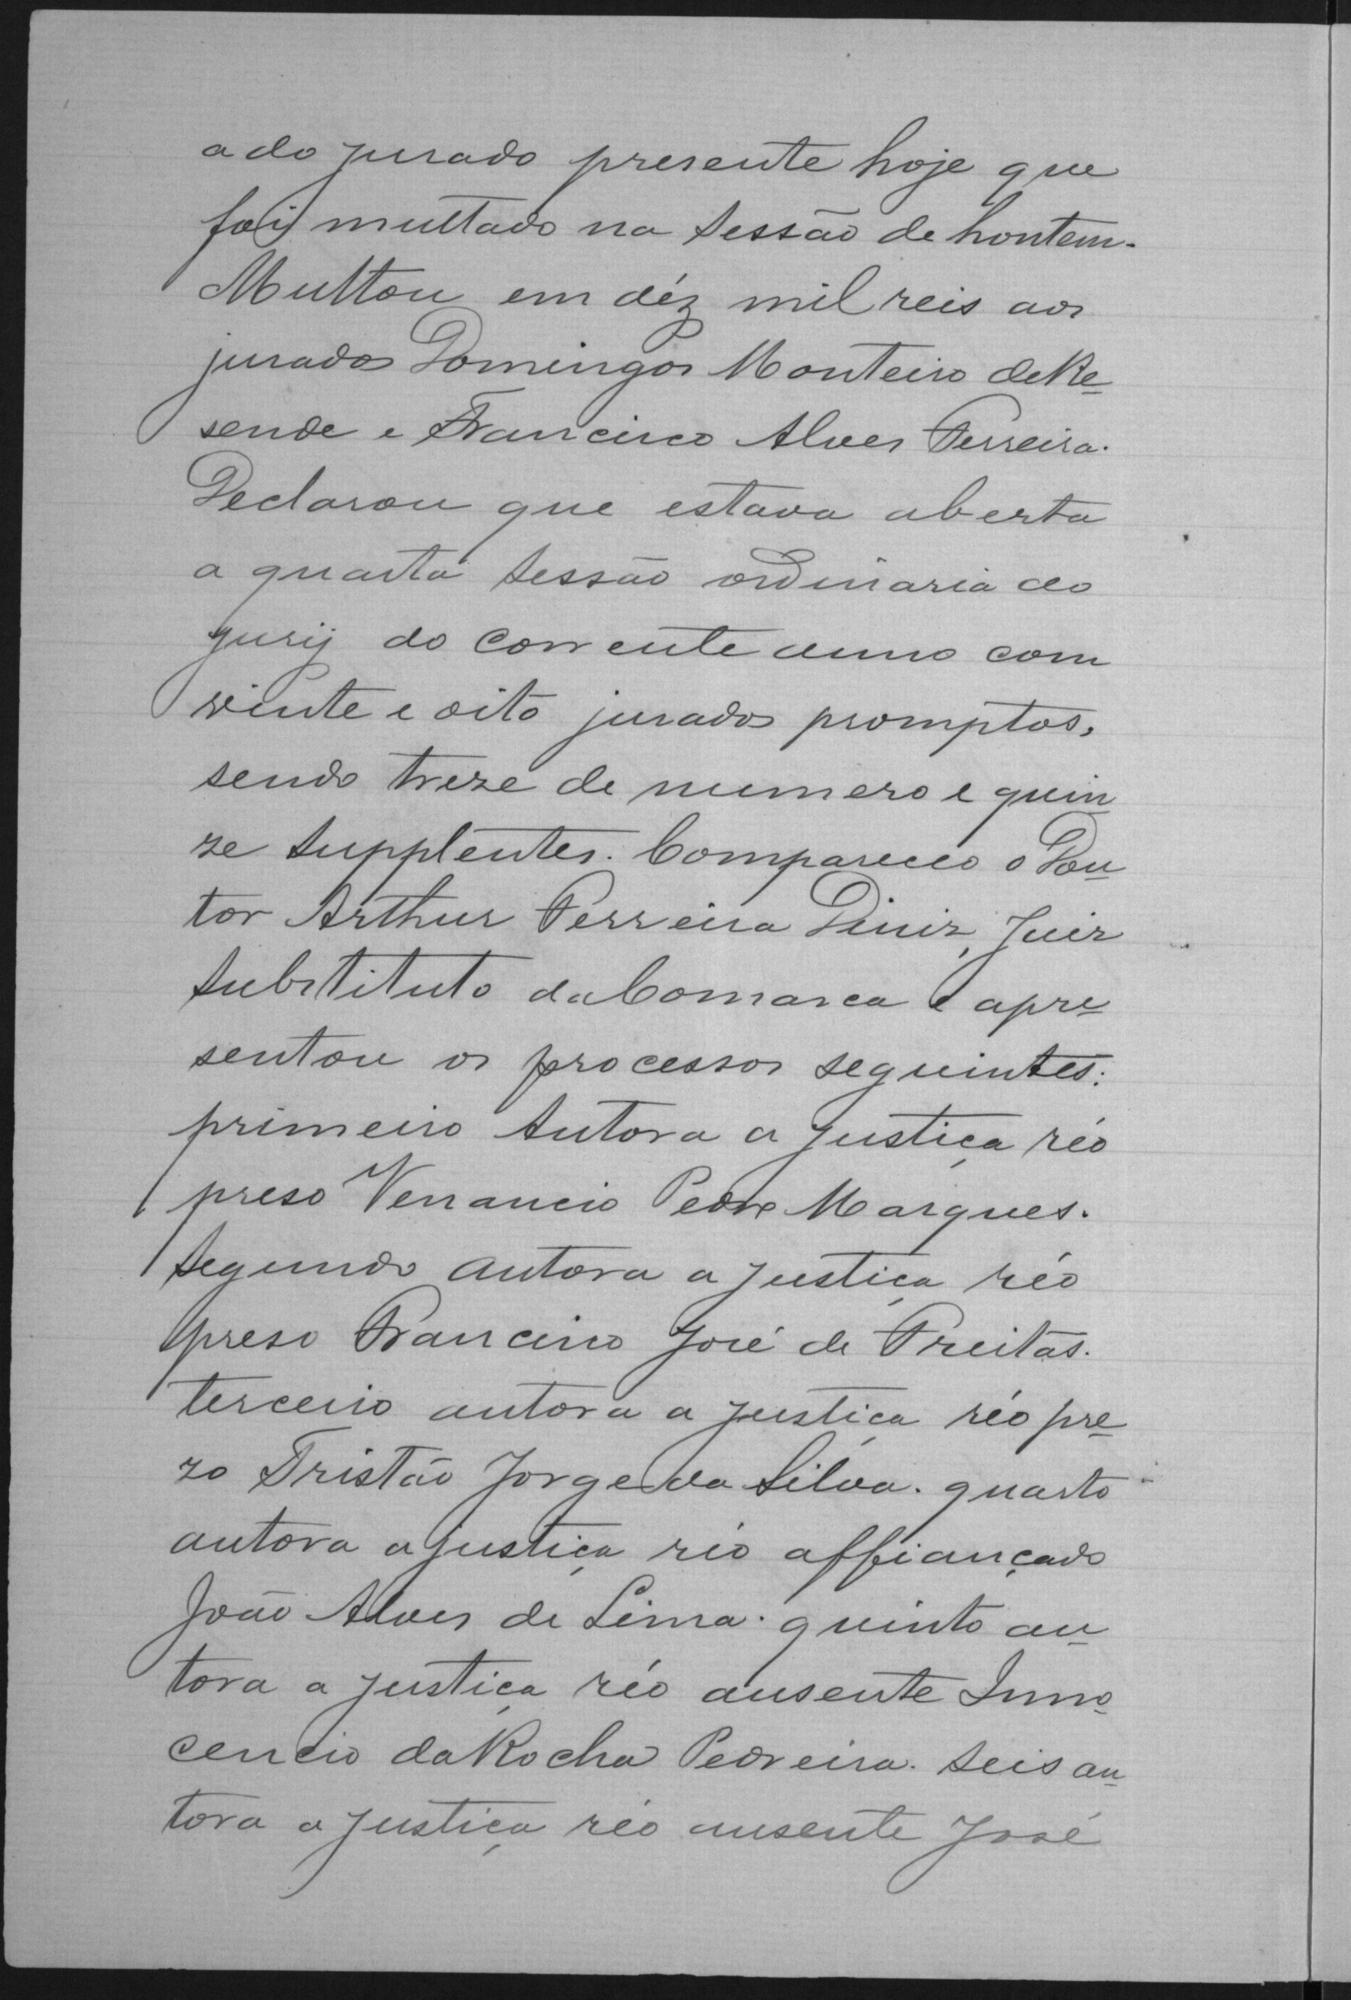 a do jurado presente hoje que
foij multado na sessão de hontem.
Multou em déz mil reis aos
jurados Domingos Monteiro de Re-
sende e Francisco Alves Ferreira.
Declarou que estava aberta
a quarta sessão ordinaria do
jurij do corrente anno com
vinte e oito jurados promptos,
sendo treze de numero e quin-
ze supplentes. Compareceo o Dou-
tor Arthur Ferreira Diniz, Juiz
substituto da Comarca e apre-
sentou os processos seguintes:
primeiro Autora a justiça réo
preso Venancio Pedro Marques.
segundo autora a justiça réo
preso Francisco José de Freitas.
terceiro autora a justiça réo pre-
zo Tristão Jorge da Silva. quarto
autora a justiça réo affiançado
João Alves de Lima. quinto au-
tora a justiça réo ausente Inno-
cencio da Rocha Pedreira. seis au-
tora a justiça réo ausente José